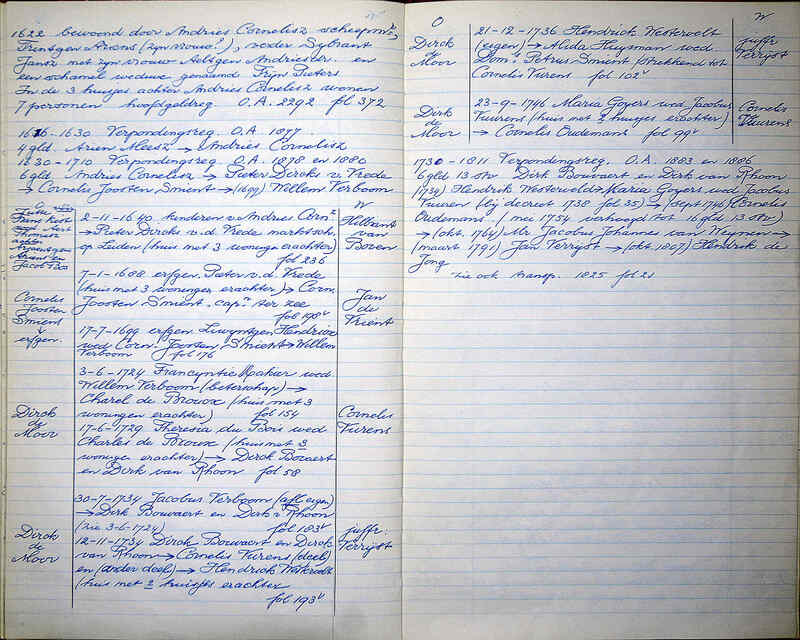 1622 bewoond door Andries Cornelisz scheepmr,
Trintgen Ariens (zyn vrouw?), voder Sybrant
Jansz met zyn vrouw Aeltgen Andriesdr. en
een schamel weduwe genaamd Tryn Pieters
In de 3 huisjes achter Andries Cornelisz wonen
7 personen hoofdgeldreg. O.A. 2292 fol 372
1616-1630 Verpondingsreg. O.A. 1877.
4 gld. Arien Alesz → Andries Cornelisz
1230-1710 Verpondingsreg. O.A. 1878 en 1880
6 gld. Andries Cornelisz → Pieter Dircks v. Vrede
→ Cornelis Joosten Smient → (1699) Willem Verboom
O
W
2-11-1640 kinderen v. Andries Cornz
→ Pieter Dircks v.d. Vrede marktsch.
op Leiden (huis met 3 woninge erachter)
fol 236
Hilbrant
van
Boven
7-1-1688 erfgen. Pieter v.d. Vrede
(huis met 3 woningen erachter) → Corn.
Joosten Smient, capn ter zee
fol 198v
Cornelis
Joosten
Smient
erfgen.
Jan
de
Vrient
17-7-1699 erfgen Lwyntgen Hendricx
wed Corn. Joosten Smient → Willem
Verboom fol 176
3-6-1724 Francyntie Makur wed
Willem Verboom (beterschap) →
Charel de Broux (huis met 3
woningen erachter) fol 154
Dirck
de
Moor
Cornelis
Vurens
17-6-1729 Theresia du Bois wed
Charles de Broux (huis met 3
woningen erachter) → Dirck Bouvaert
en Dirk van Rhoon fol 58
30-7-1734 Jacobus Verboom (afl. eigen)
→ Dirk Bouwaert en Dirk v. Rhoon
(zie 3-6-1724) fol 183v
Dirck
de
Moor
juffr.
Verryst
12-11-1734 Dirck Bouwaert en Dirck
van Rhoon → Cornelis Vurens (deel)
en (ander deel) → Hendrick Westervelt
(huis met 2 huisjes erachter
fol 193v
O
W
Dirck
de
Moor
21-12-1736 Hendrick Westervelt
(eigen) → Alida Huysman wed.
Domi Petrus Smient strekkend tot
Cornelis Vurens fol 102v
juffr
Verryst
Dirck
de
Moor
23-9-1746 Maria Goyers wed Jacobus
Vuurens (huis met 2 huisjes erachter)
→ Cornelis Oudemans fol 99v
Cornelis
Vuurens
1730-1811 Verpondingsreg. O.A. 1883 en 1886
6 gld 13 stv Dirk Bouwaert en Dirk van Rhoon
(1734) Hendrik Westerveld → Maria Goyers wed Jacobus
Vuuren (bij decreet 1738 fol 35) → (sept 1746) Cornelis
Oudemans (mei 1754 verhoogd tot 16 gld 13 stv)
→ (okt. 1764) Mr Jacobus Johannes van Weymen →
(maart 1791) Jan Verryst → (okt. 1807) Hendrik de
Jong
zie ook transp. 1825 fol 21